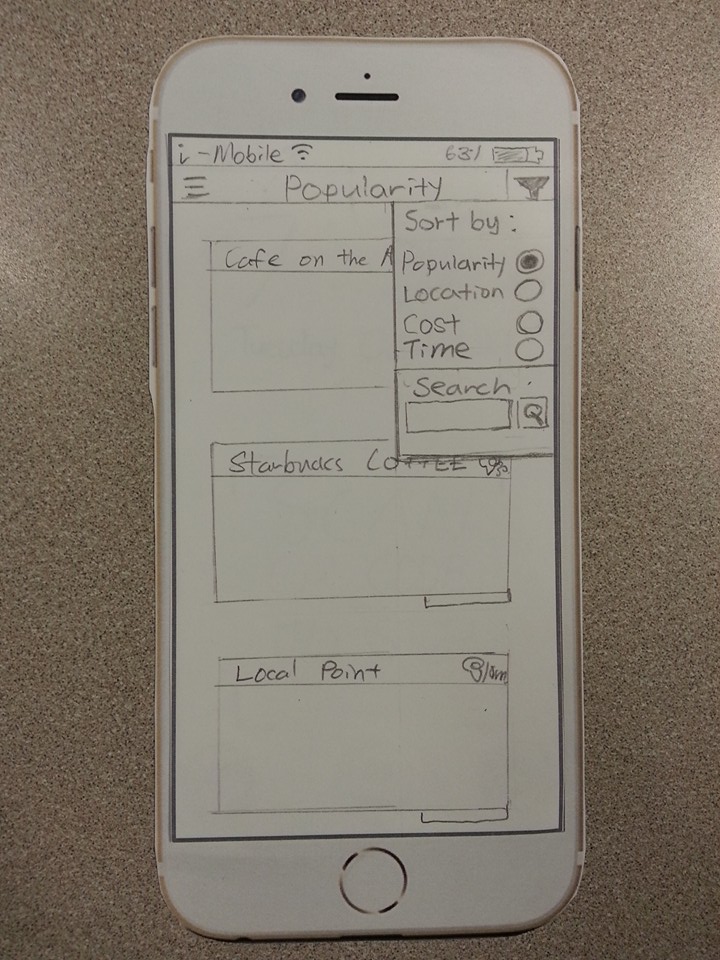 i-Mobile 63%
Popularity
Sort by:
Popularity
Location
Cost
Time
Search:
Cafe on the
Starbucks COFFEE
Local Point